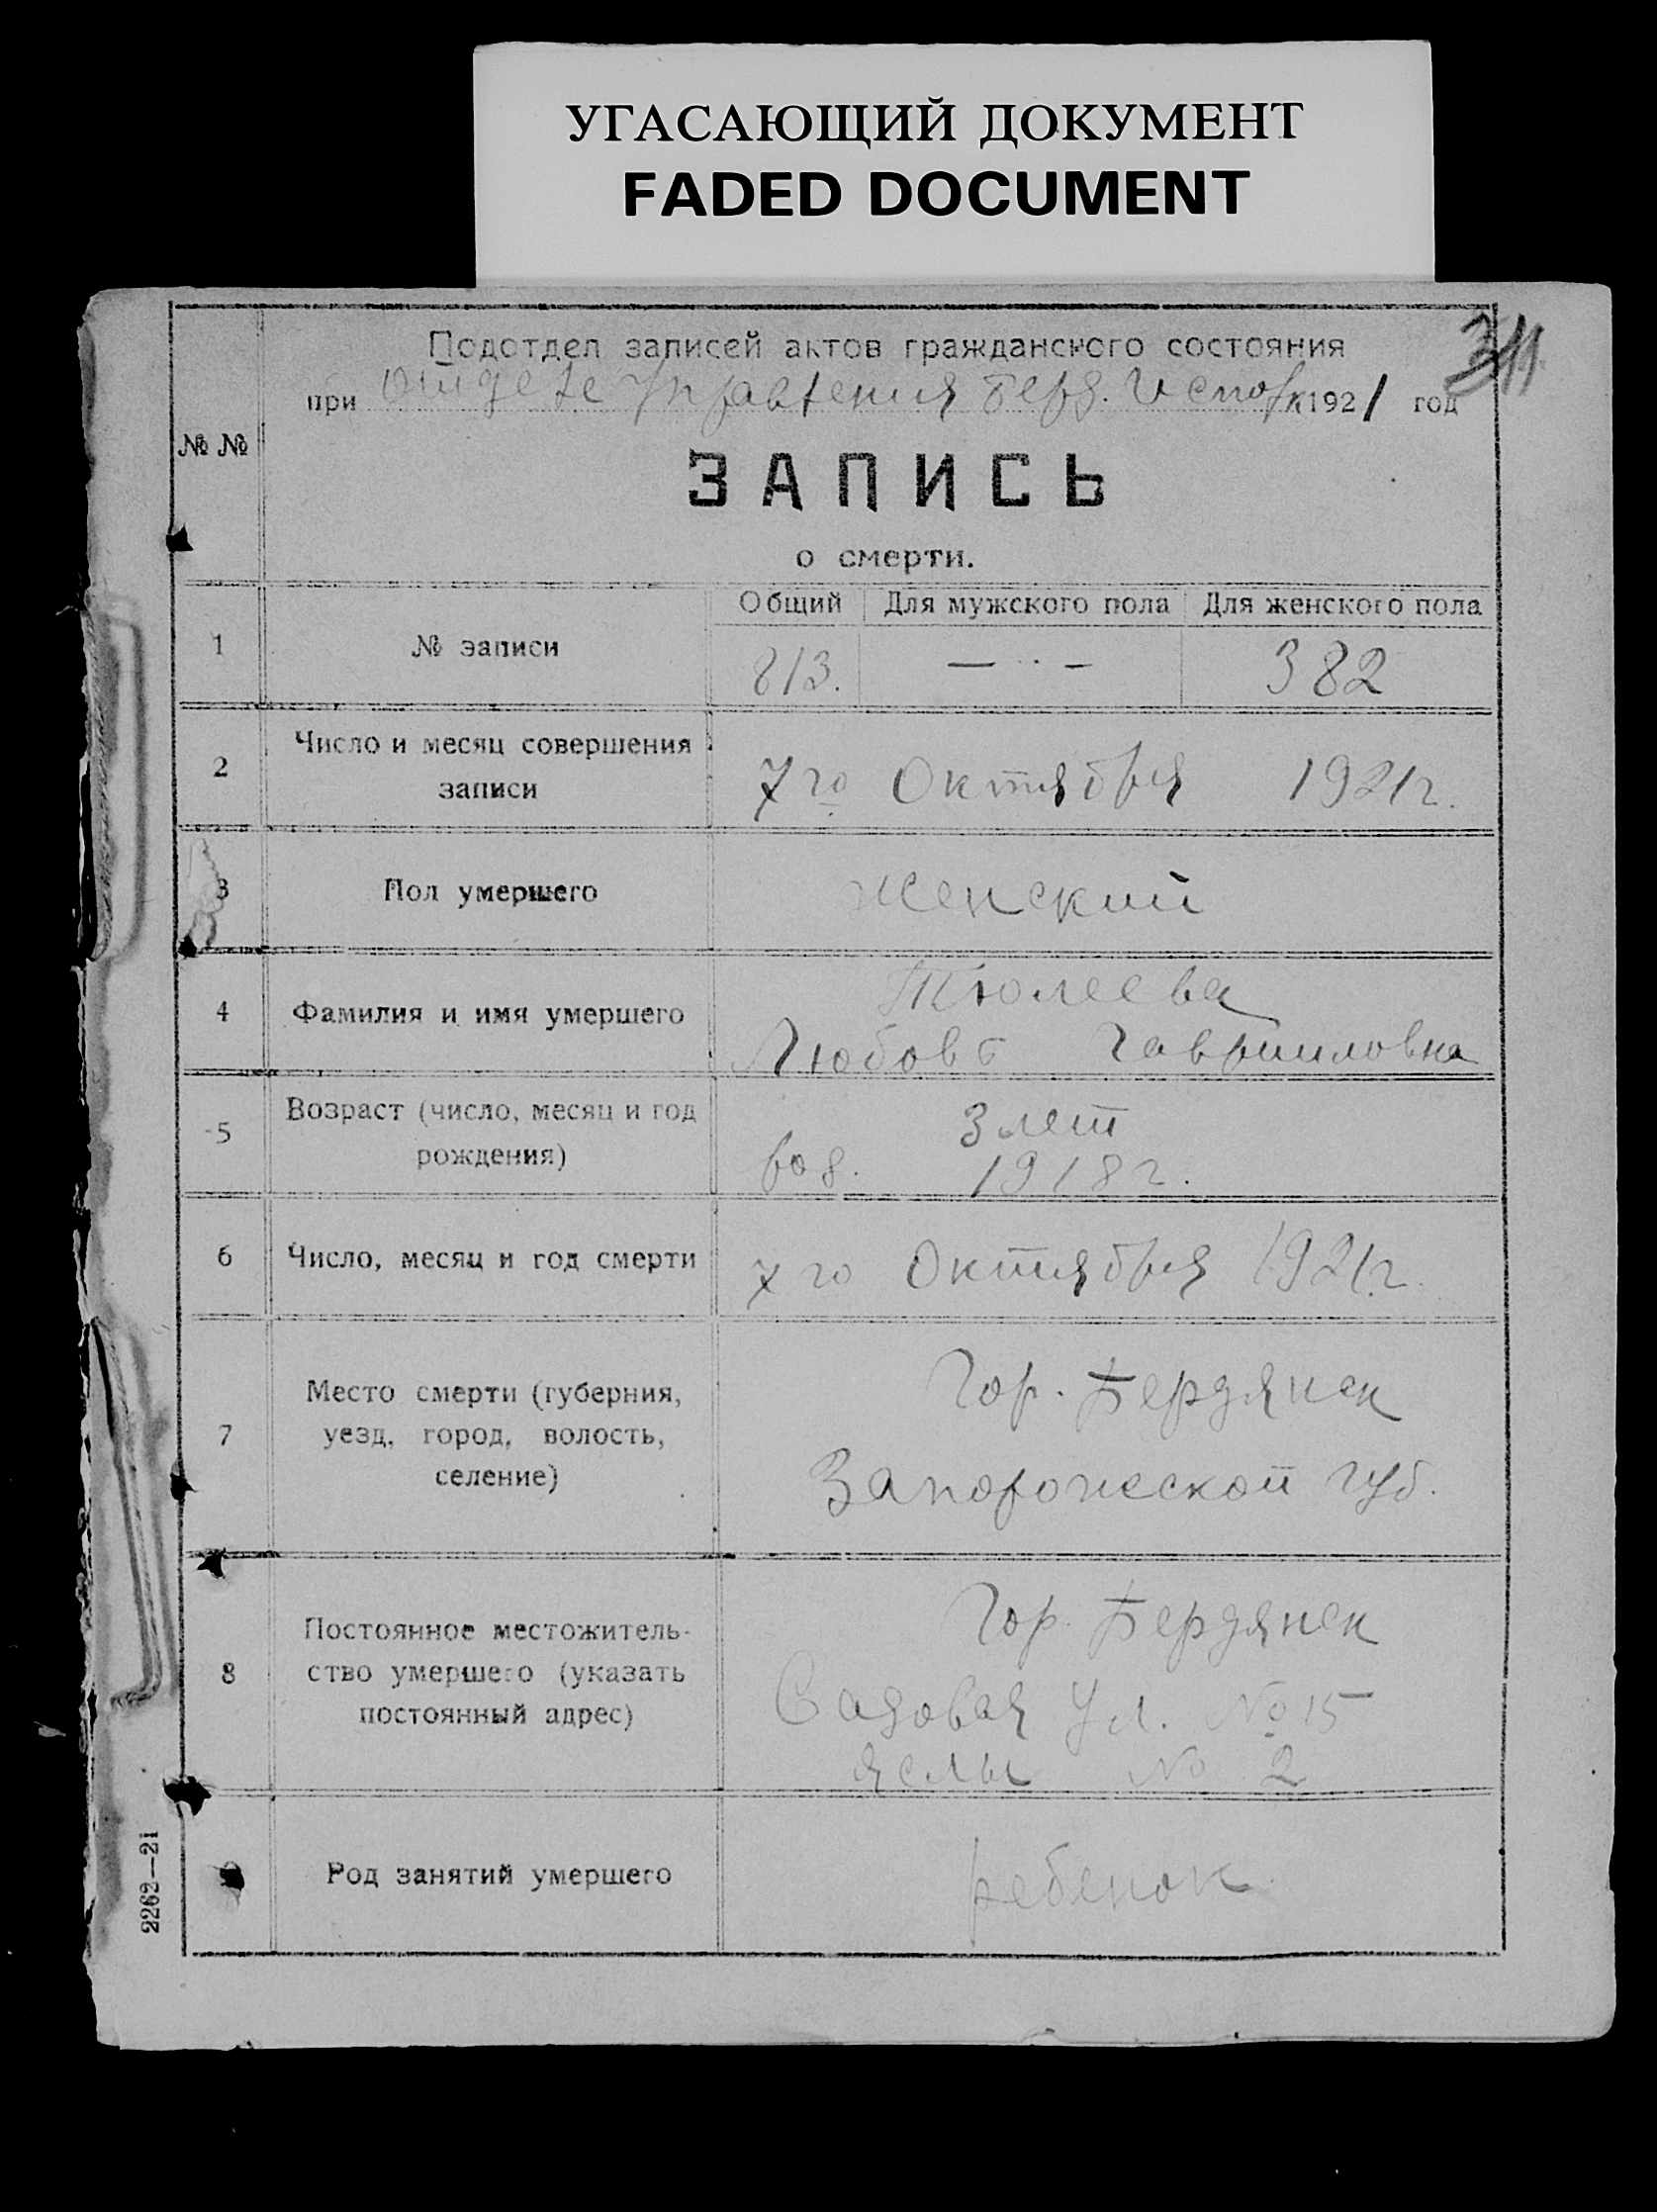 УГАСАЮЩИЙ ДОКУМЕНТ
FADED DOCUMENT
Подотдел записей актов гражданского состояния
при Отделе Управления Берд. Исполк 1921 год
№ №
ЗАПИСЬ
о смерти.
Общий Для мужского пола Для женского пола
1 № записи 813. — · – 382
2 Число и месяц совершения
записи 7го Октября 1921г.
3 Пол умершего женский
Тюлеева
4 Фамилия и имя умершего
Любовь Гаврииловна
5 Возраст (число, месяц и год
рождения)
3 лет
род. 1918г.
6 Число, месяц и год смерти 7го Октября 1921г.
7 Место смерти (губерния,
уезд, город, волость,
селение)
Гор. Бердянск
Запорожской губ.
8 Постоянное местожитель-
ство умершего (указать
постоянный адрес)
Гор. Бердянск
Садовая ул. № 15
ясли № 2
Род занятий умершего ребенок
2262—21